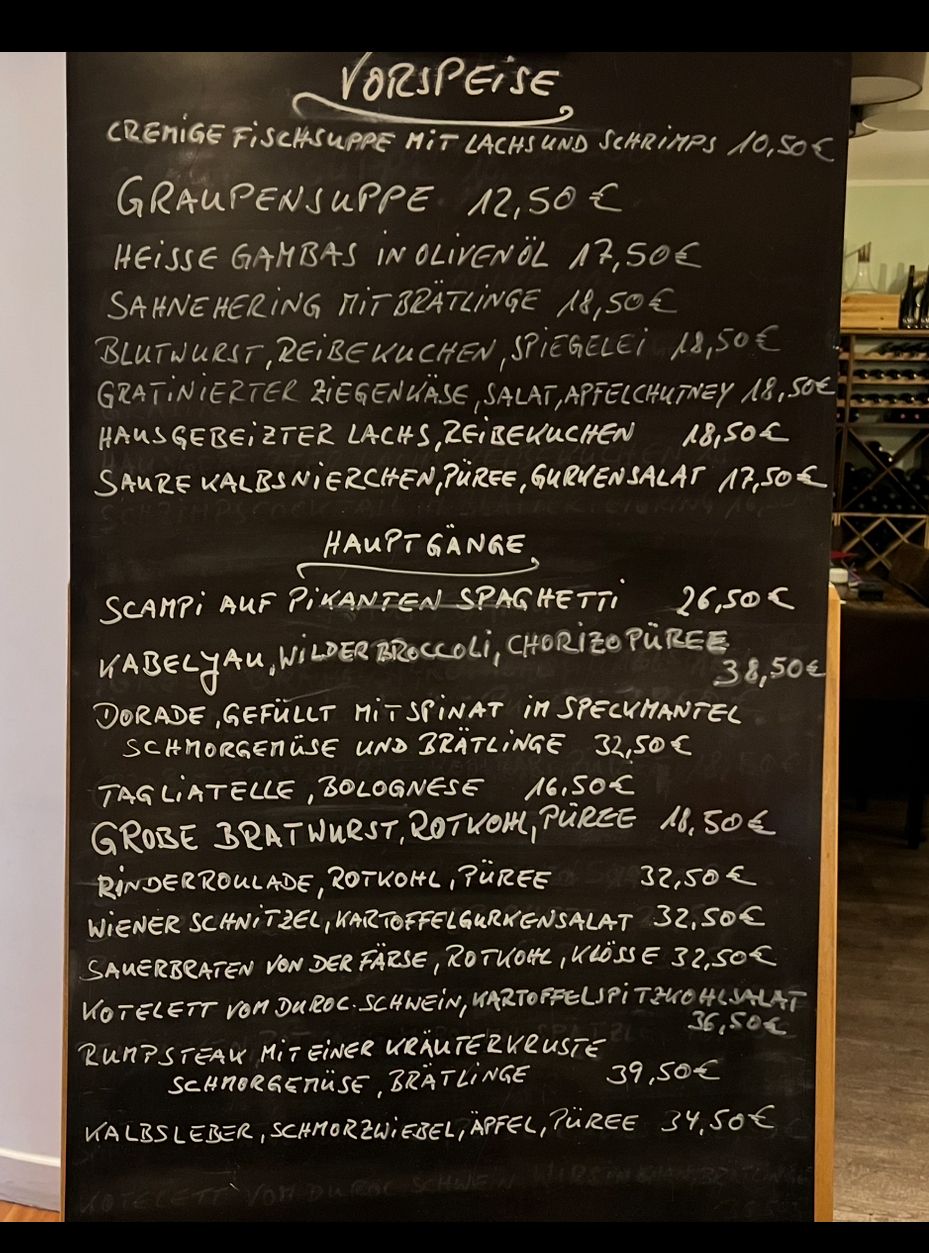 VORSPEISE
CREMIGE FISCHSUPPE MIT LACHS UND SCHRIMPS 10,50€
GRAUPENSUPPE 12,50€
HEISSE GAMBAS IN OLIVENÖL 17,50€
SAHNEHERING MIT BRÄTLINGE 18,50€
BLUTWURST, REIBEKUCHEN, SPIEGELEI 18,50€
GRATINIERTER ZIEGENKÄSE, SALAT, APFELCHUTNEY 18,50€
HAUSGEBEIZTER LACHS, REIBEKUCHEN 18,50€
SAURE KALBSNIERCHEN, PÜREE, GURKENSALAT 17,50€
HAUPTGÄNGE
SCAMPI AUF PIKANTEN SPAGHETTI 26,50€
KABELYAU, WILDER BROCCOLI, CHORIZO PÜREE
38,50€
DORADE, GEFÜLLT MIT SPINAT IM SPECKMANTEL
SCHMORGEMÜSE UND BRÄTLINGE 32,50€
TAGLIATELLE, BOLOGNESE 16,50€
GROBE BRATWURST, ROTKOHL, PÜREE 18,50€
RINDERROULADE, ROTKOHL, PÜREE 32,50€
WIENER SCHNITZEL, KARTOFFELGURKENSALAT 32,50€
SAUERBRATEN VON DER FÄRSE, ROTKOHL, KLÖSSE 32,50€
KOTELETT VOM DUROC-SCHWEIN, KARTOFFELSPITZKOHLSALAT
36,50€
RUMPSTEAK MIT EINER KRÄUTERKRUSTE
SCHMORGEMÜSE, BRÄTLINGE 39,50€
KALBSLEBER, SCHMORZWIEBEL, ÄPFEL, PÜREE 34,50€